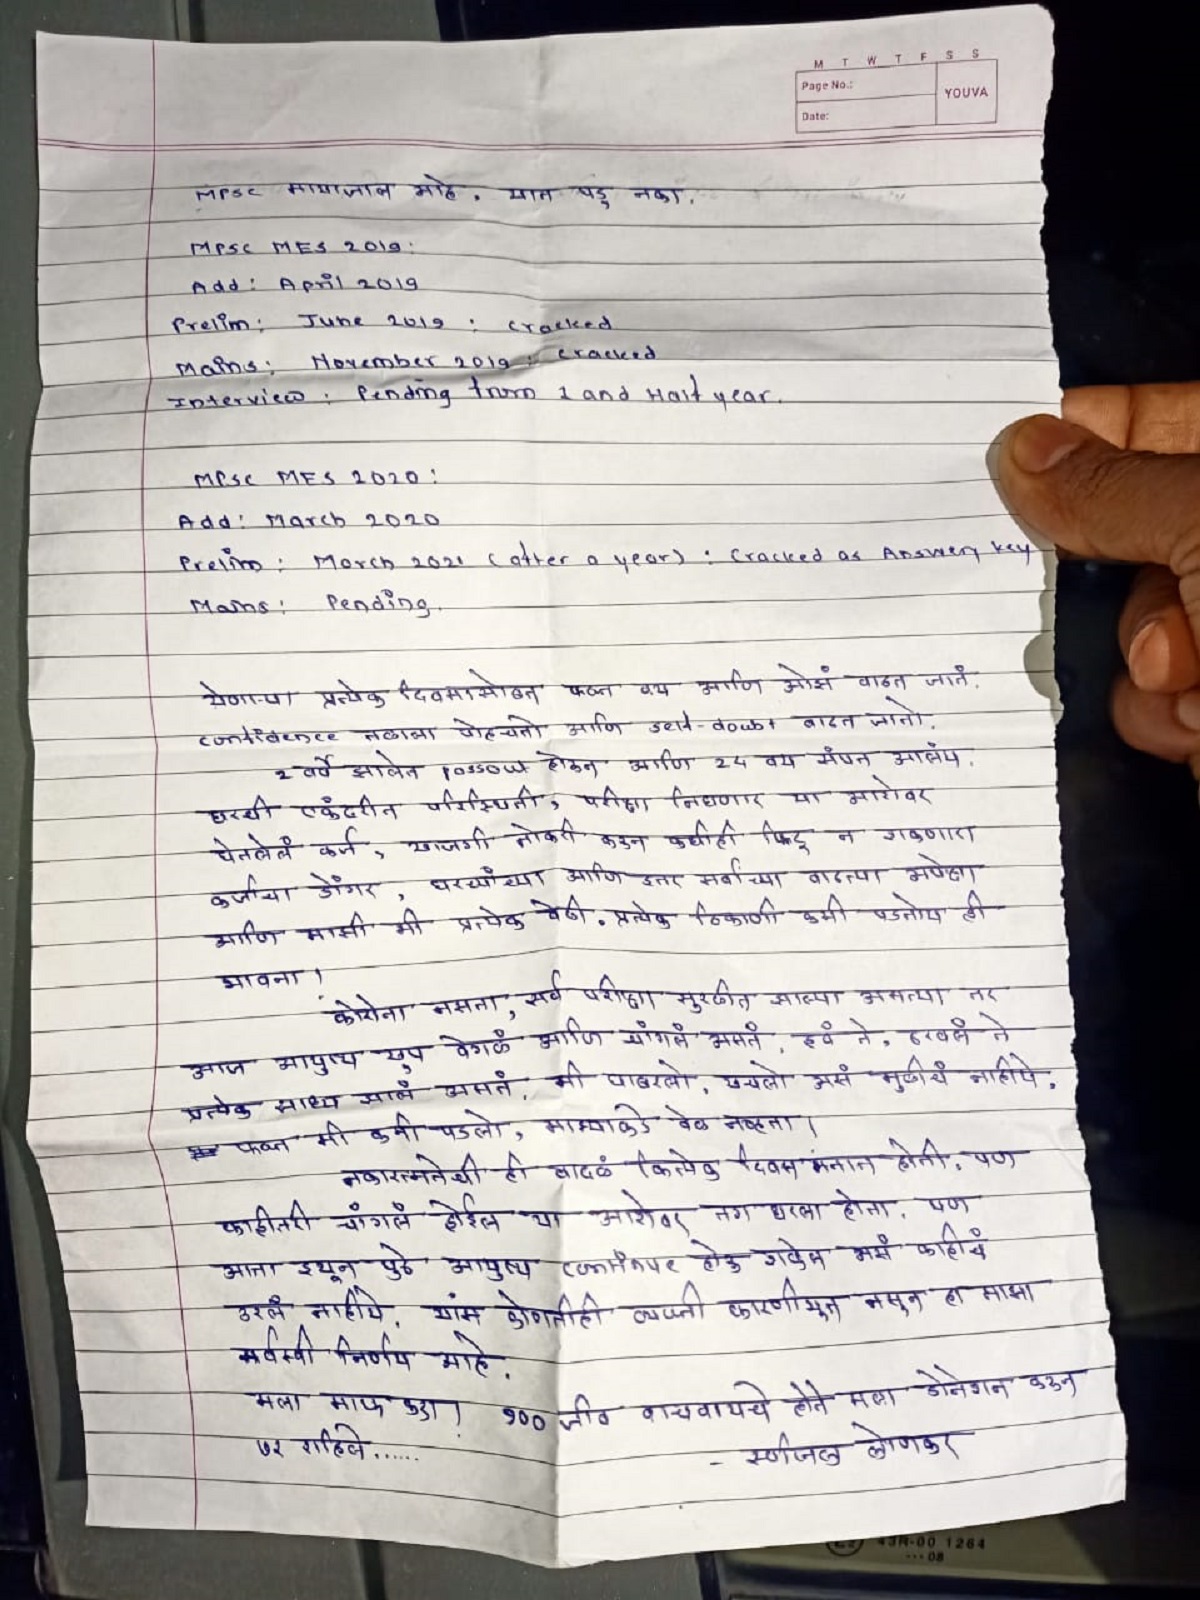 M T W T F S S
Page No.:
YOUVA
Date:
MPSC मायाजाल आहे. यात पडू नका.
MPSC MES 2019:
Add: April 2019
Prelim: June 2019 : cracked
Mains: November 2019 : cracked
Interview : Pending from 1 and Half year.
MPSC MES 2020:
Add: March 2020
Prelim: March 2021 (after a year) : Cracked as Answery key
Mains: Pending.
येणाऱ्या प्रत्येक दिवसासोबत फक्त वय आणि ओझं वाढत जातं.
confidence तळाला पोहचतो आणि self-doubt वाढत जातो.
2 वर्ष झालेत passout होऊन आणि 24 वय संपत आलंय.
घरची एकंदरीत परिस्थिती, परीक्षा निघणार या आशेवर
घेतलेलं कर्ज, खाजगी नोकरी करून कधीही फिटू न शकणारा
कर्जाचा डोंगर, घरच्यांच्या आणि इतर सर्वांच्या वाढत्या अपेक्षा
आणि माझी मी प्रत्येक वेळी. प्रत्येक ठिकाणी कमी पडतोय ही
भावना!
कोरोना नसता, सर्व परीक्षा सुरळीत झाल्या असत्या तर
आज आयुष्य खुप वेगळं आणि चांगलं असतं. हवं ते. ठरवलं ते
प्रत्येक साध्य झालं असतं. मी घाबरलो, खचलो असं मुळीचं नाहीये.
फक्त मी कमी पडलो, माझ्याकडे वेळ नव्हता!
नकारात्मतेची ही वादळं कित्येक दिवस मनात होती. पण
काहीतरी चांगलं होईल या आशेवर तग धरला होता. पण
आता इथून पुढे आयुष्य continue होऊ शकेल असं काहीचं
उरलं नाहीये. यांस कोणतीही व्यक्ती कारणीभूत नसून हा माझा
सर्वस्वी निर्णय आहे.
मला माफ करा! 100 जीव वाचवायचे होते मला डोनेशन करुन
७२ राहिले......
- स्वप्निल लोणकर
43R-00 1264
08